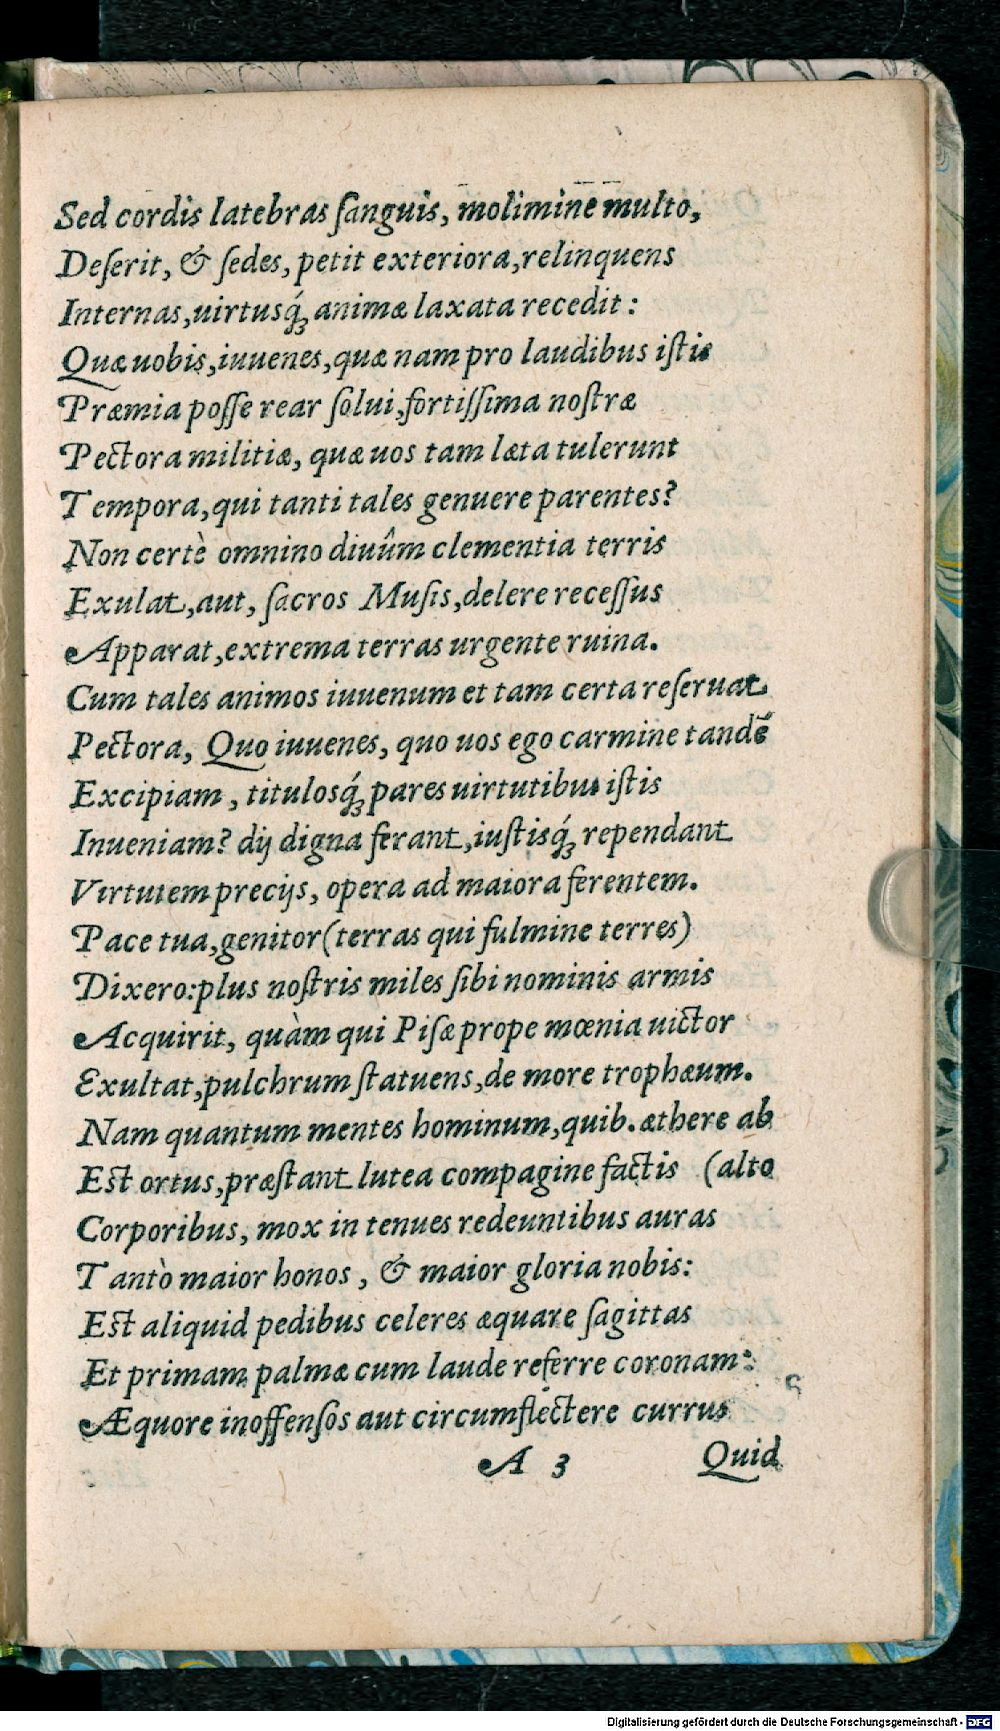 Sed cordis latebras ſanguis, molimine multo,
Deſerit, & ſedes, petit exteriora, relinquens
Internas, uirtusq́; animæ laxata recedit:
Quæ uobis, iuuenes, quæ nam pro laudibus iſtis
Præmia poſſe rear ſolui, fortiſſima noſtræ
Pectora militiæ, quæ uos tam læta tulerunt
Tempora, qui tanti tales genuere parentes?
Non certè omnino diuûm clementia terris
Exulat, aut, ſacros Muſis, delere receſſus
Apparat, extrema terras urgente ruina.
Cum tales animos iuuenum et tam certa reſeruat
Pectora, Quo iuuenes, quo uos ego carmine tandē
Excipiam, titulosq́; pares uirtutibus iſtis
Inueniam? dij digna ferant, iuſtisq́; rependant
Virtutem precijs, opera ad maiora ferentem.
Pace tua, genitor (terras qui fulmine terres)
Dixero: plus noſtris miles ſibi nominis armis
Acquirit, quàm qui Piſæ prope mœnia uictor
Exultat, pulchrum ſtatuens, de more trophæum.
Nam quantum mentes hominum, quib. æthere ab
Eſt ortus, præſtant lutea compagine factis (alto
Corporibus, mox in tenues redeuntibus auras
Tantò maior honos, & maior gloria nobis:
Eſt aliquid pedibus celeres æquare ſagittas
Et primam palmæ cum laude referre coronam:
Æquore inoffenſos aut circumflectere currus
A 3 Quid
Digitalisierung gefördert durch die Deutsche Forschungsgemeinschaft - DFG